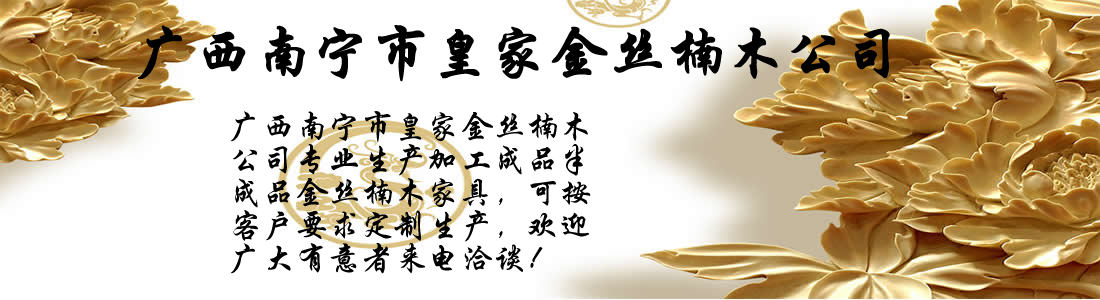 广西南宁市皇家金丝楠木公司
广西南宁市皇家金丝楠木
公司专业生产加工成品半
成品金丝楠木家具，可按
客户要求定制生产，欢迎
广大有意者来电洽谈！